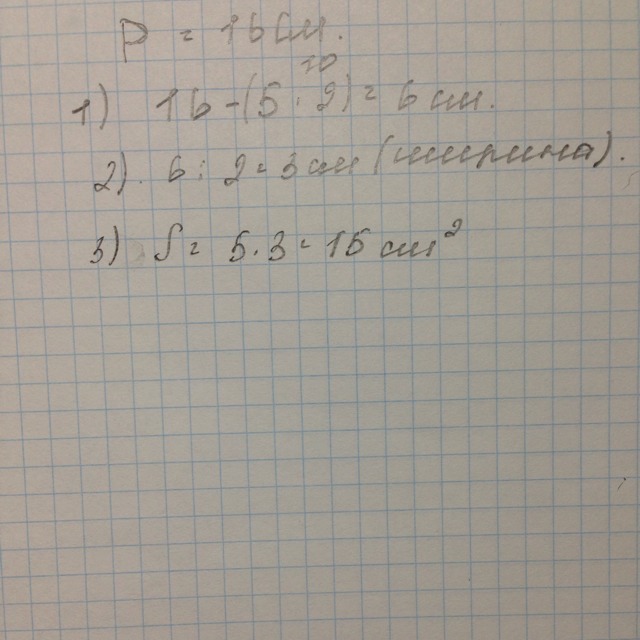 P = 16 см.
10
1) 16-(5·2)=6 см.
2). 6:2=3 см (ширина).
3) S= 5·3=15 см²